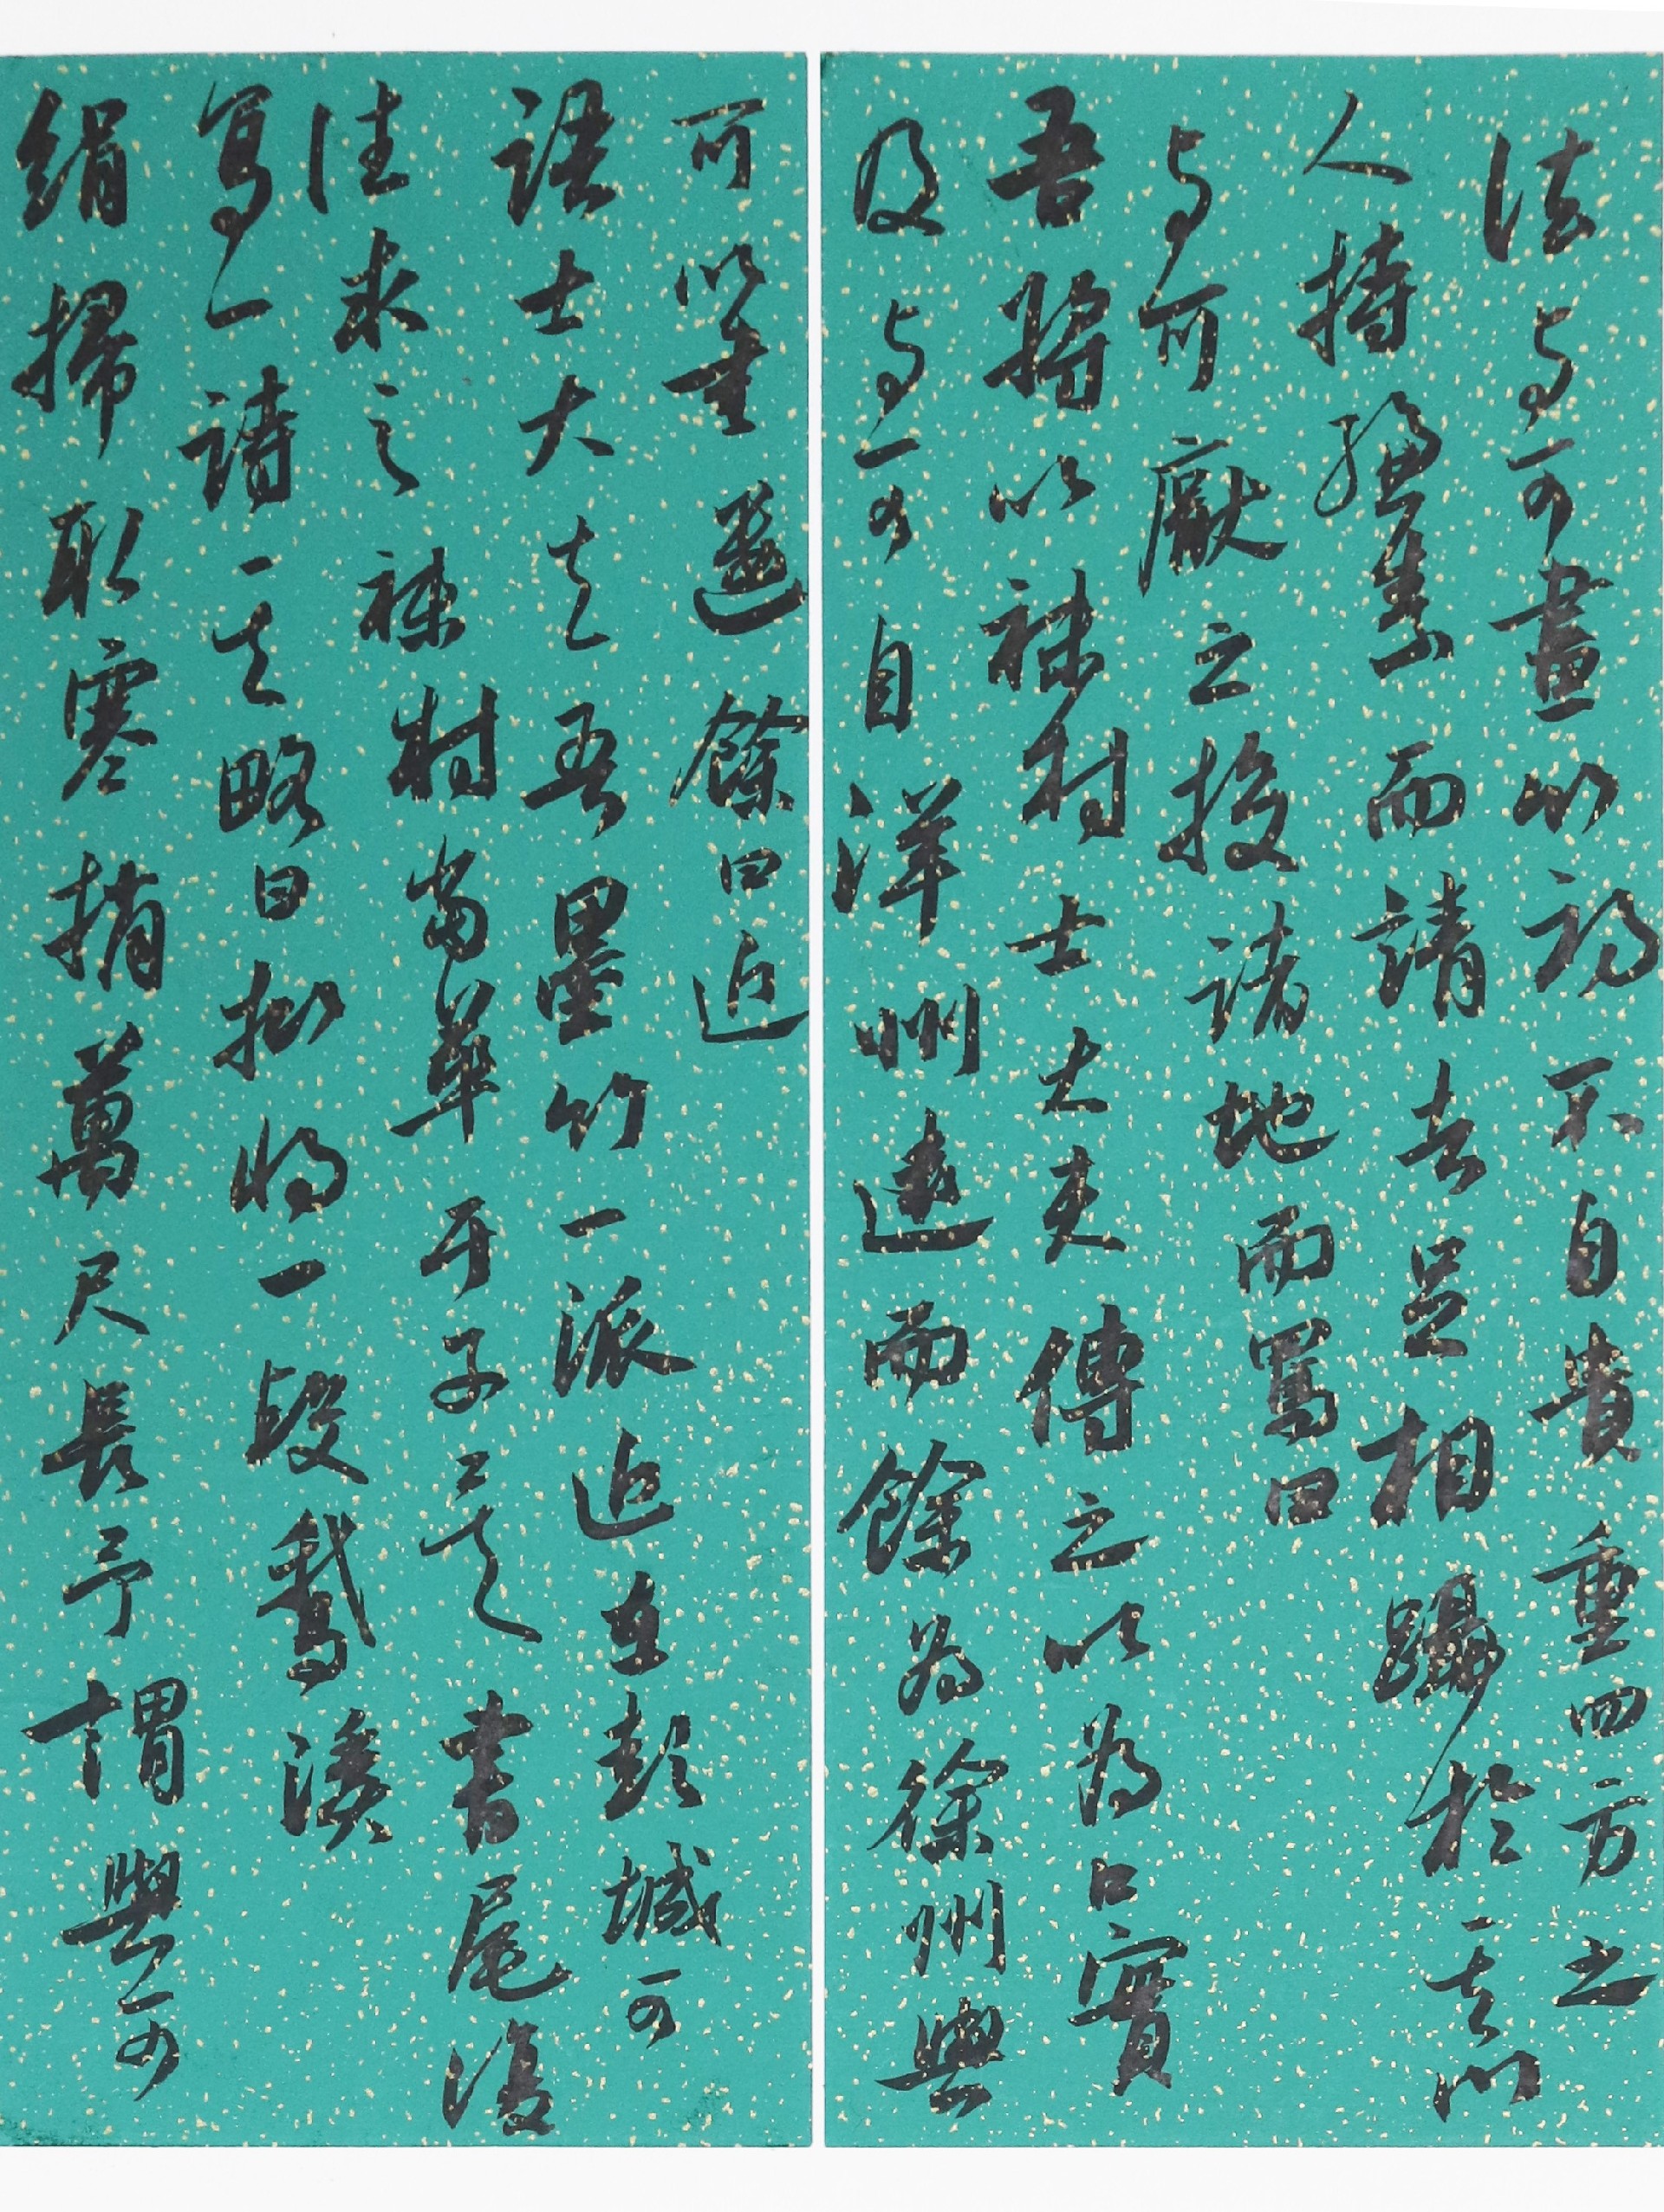 法与可畫竹初不自貴重四方之
人持縑素而請者足相躡於其門
与可厭之投諸地而罵曰
吾將以袜材士大夫傳之以為口實
及与可自洋州還而餘為徐州與
可以書遺餘曰近
語士大夫吾墨竹一派近在彭城可
往求之袜材當萃于子矣書尾復
寫一詩其略曰擬將一段鵝溪
絹掃取寒梢萬尺長予謂與可